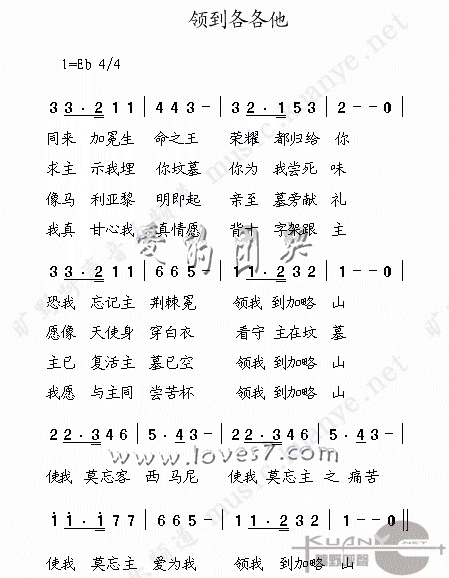 领到各各他
1=Eb 4/4
3 3·2 1 1 | 4 4 3 - | 3 2·1 5 3 | 2 - - 0 |
同来 加冕生 命之王 荣耀 都归给 你
求主 示我埋 你坟墓 你为 我尝死 味
像马 利亚黎 明即起 亲至 墓旁献 礼
我真 甘心我 真情愿 背十 字架跟 主
爱的团契
1 1·2 3 1 | 6 6 5 - | 1 1·2 3 2 | 1 - - 0 |
恐我 忘记主 荆棘冕 领我 到加略 山
愿像 天使身 穿白衣 看守 主在坟 墓
主已 复活主 墓已空 领我 到加略 山
我愿 与主同 尝苦杯 领我 到加略 山
2 2·3 4 6 | 5·4 3 - | 2 2·3 4 6 | 5·4 3 - |
www.loves7.com
使我 莫忘客 西 马尼 使我 莫忘主 之 痛苦
i i·i 7 7 | 6 6 5 - | 1 1·2 3 2 | 1 - - 0 ||
使我 莫忘主 爱为我 领我 到加略 山
KUANYE.NET
旷野呼声